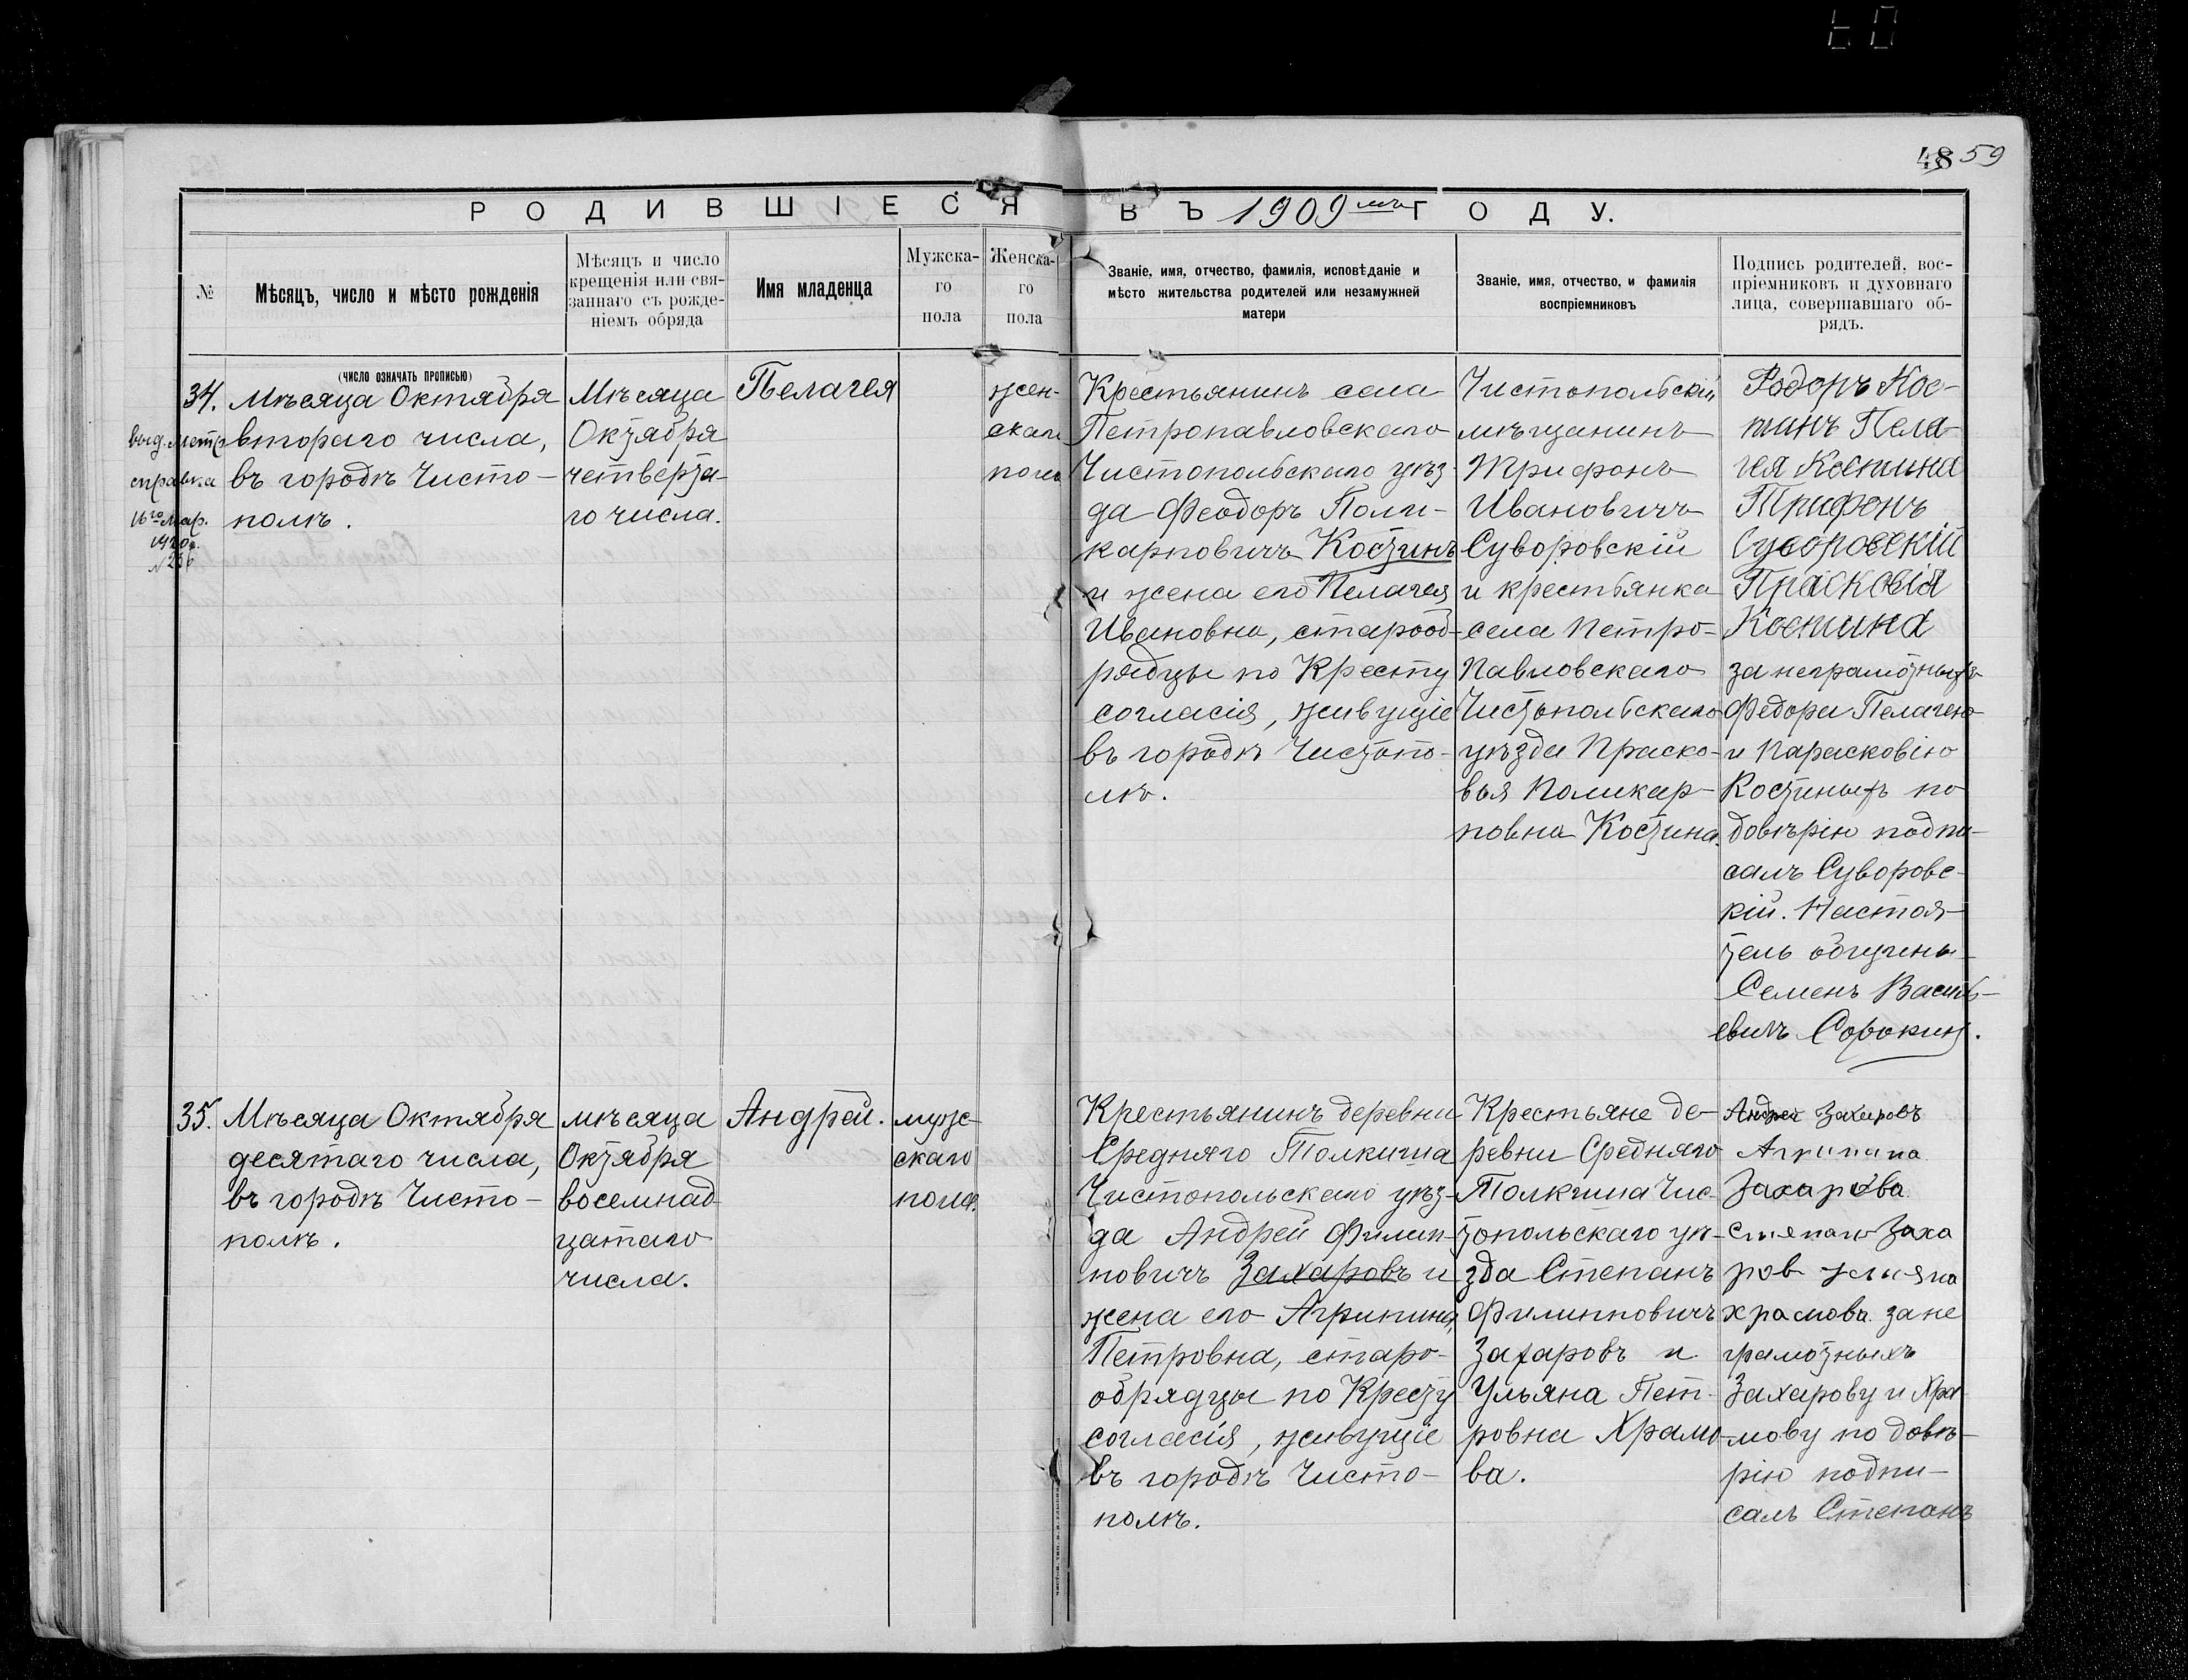 48 59
РОДИВШІЕСЯ ВЪ 1909мъ ГОДУ.
№
Мѣсяцъ, число и мѣсто рожденія
Мѣсяцъ и число
крещенія или свя-
заннаго съ рожде-
ніемъ обряда
Имя младенца
Мужска-
го
пола
Женска-
го
пола
Званіе, имя, отчество, фамилія, исповѣданіе и
мѣсто жительства родителей или незамужней
матери
Званіе, имя, отчество, и фамилія
воспріемниковъ
Подпись родителей, вос-
пріемниковъ и духовнаго
лица, совершавшаго об-
рядъ.
(число означать прописью)
34.
выд. метр.
справка
16го Мар.
1920г.
Мѣсяца Октября
второго числа,
въ городѣ Чисто-
полѣ.
Мѣсяца
Октября
четверта-
го числа.
Пелагея
жен-
скаго
пола
Крестьянинъ села
Петропавловскаго
Чистопольскаго уѣз-
да Феодоръ Поли-
карповичъ Костинъ
и жена его Пелагея
Ивановна, старооб-
рядцы по Кресту
согласія, живущіе
въ городѣ Чистопо-
лѣ.
Чистопольскій
мѣщанинъ
Трифонъ
Ивановичъ
Суворовскій
и крестьянка
села Петро-
павловскаго
Чистопольскаго
уѣзда Праско-
вья Поликар-
повна Костина.
Федоръ Кос-
тинъ Пела-
гея Костина
Трифонъ
Суворовскій
Прасковія
Костина
за неграмотныхъ
Федора Пелагею
и Парасковію
Костиныхъ по
довѣрію подпи-
салъ Суворовс-
кій. Настоя-
тель общины
Семенъ Василь-
евичъ Сорокинъ.
35.
Мѣсяца Октября
десятаго числа,
въ городѣ Чисто-
полѣ.
мѣсяца
Октября
восемнад-
цатаго
числа.
Андрей.
муж-
скаго
пола.
Крестьянинъ деревни
Средняго Толкиша
Чистопольскаго уѣз-
да Андрей Филип-
повичъ Захаровъ и
жена его Агрипина
Петровна, старо-
обрядцы по Кресту
согласія, живущіе
въ городѣ Чисто-
полѣ.
Крестьяне де-
ревни Средняго
Толкиша Чис-
топольскаго уѣ-
зда Степанъ
Филипповичъ
Захаровъ и
Ульяна Пет-
ровна Храмо-
ва.
Андрей Захаровъ
Агрипина
Захарова
Степанъ Заха
ров ульяна
храмова за не
грамотныхъ
Захарову и Хра
мову по довѣ-
рію подпи-
салъ Степанъ